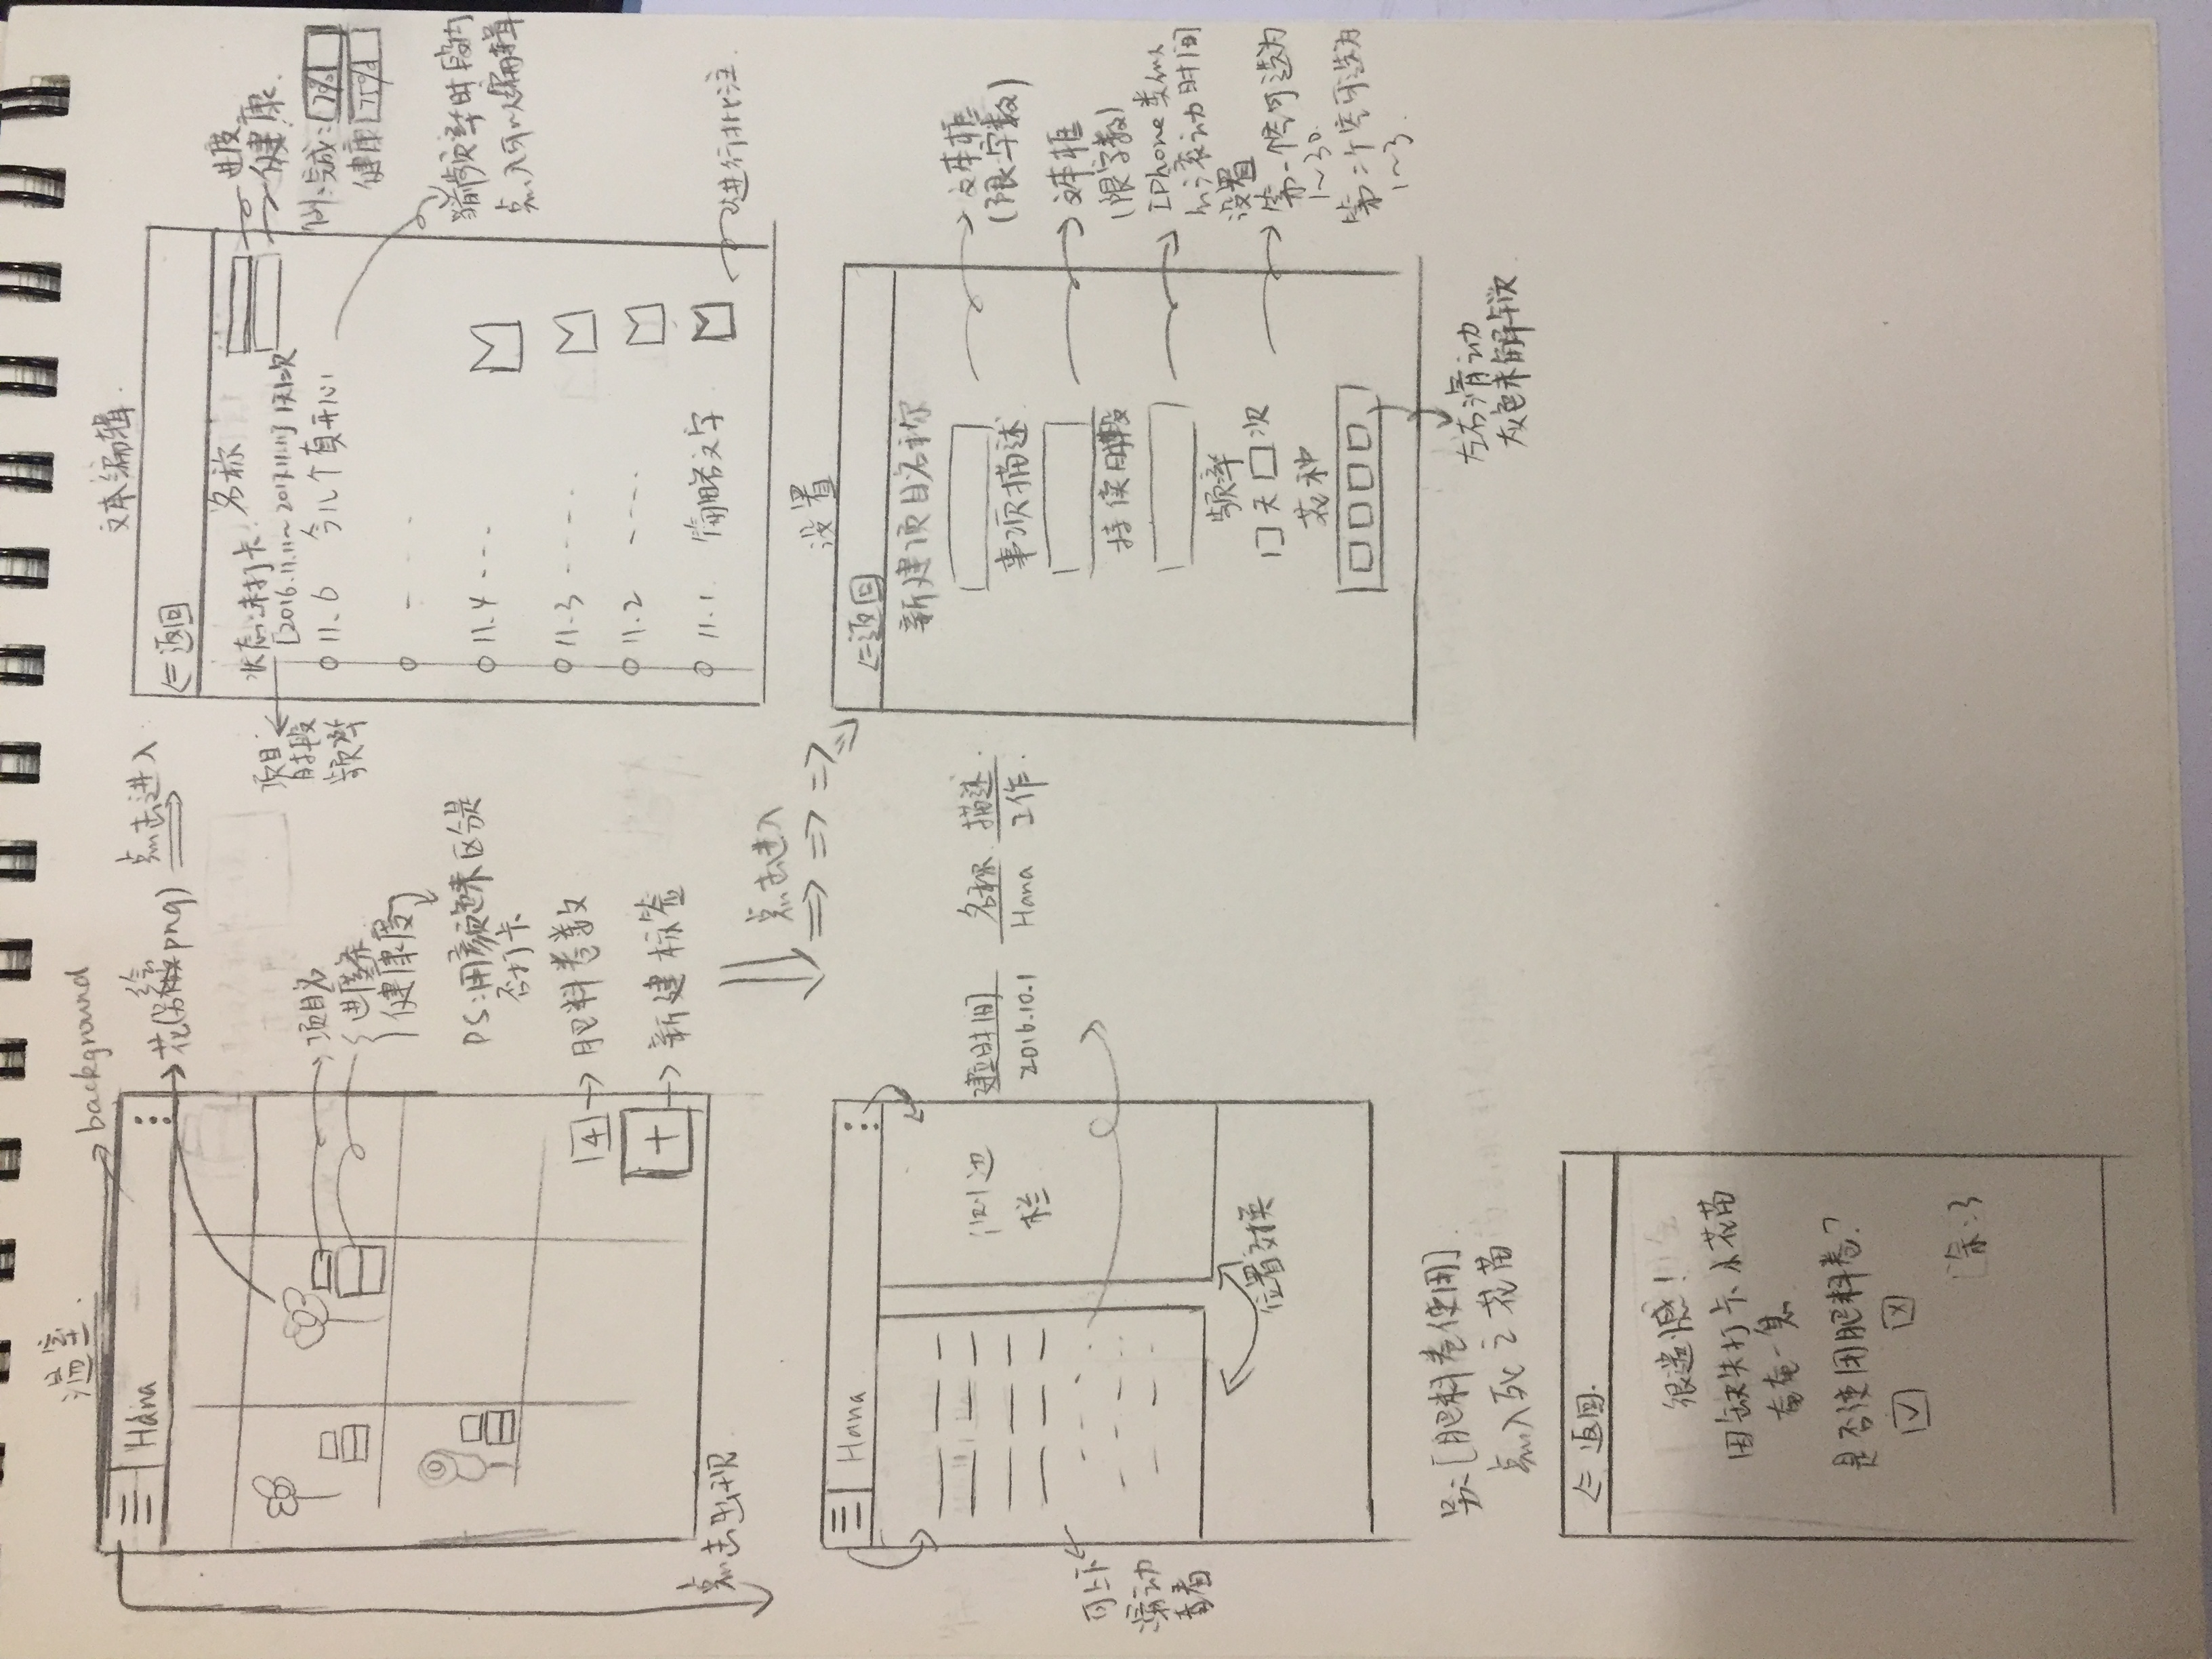 温室.
background
Hana
花(另绘png)
点击进入
项目名
进度条
健康度
PS:用颜色来区分是
否打卡
4
肥料卷数
+
新建标签
点击出现
文本编辑.
返回
名称
状态:未打卡.
进度
健康.
项目
时段
频率
[2016.11.11~2017.11.11] 1天1次
11.6 今儿个真开心
例:完成:7%
健康75%
频率时段内
点入可以编辑
11.4
11.3
11.2
11.1 简略文字
进行批注.
点击进入
Hana
侧边
栏
建立时间 名称 描述.
2016.10.1 Hana 工作.
可上下
滑动
查看
位置交换
设置
返回
新建项目名称
文本框
(限字数)
事项描述
文本框
(限字数)
持续时段
IPhone类似
的滚动时间
设置
频率
天 次
第一个空可选为
1~30.
第二个空可选为
1~3.
花种
左右滑动
灰色未解锁
另:[肥料卷使用].
点入死之花苗
返回.
很遗憾!
因缺失打卡小花苗
奄奄一息
是否使用肥料卷?
余:3